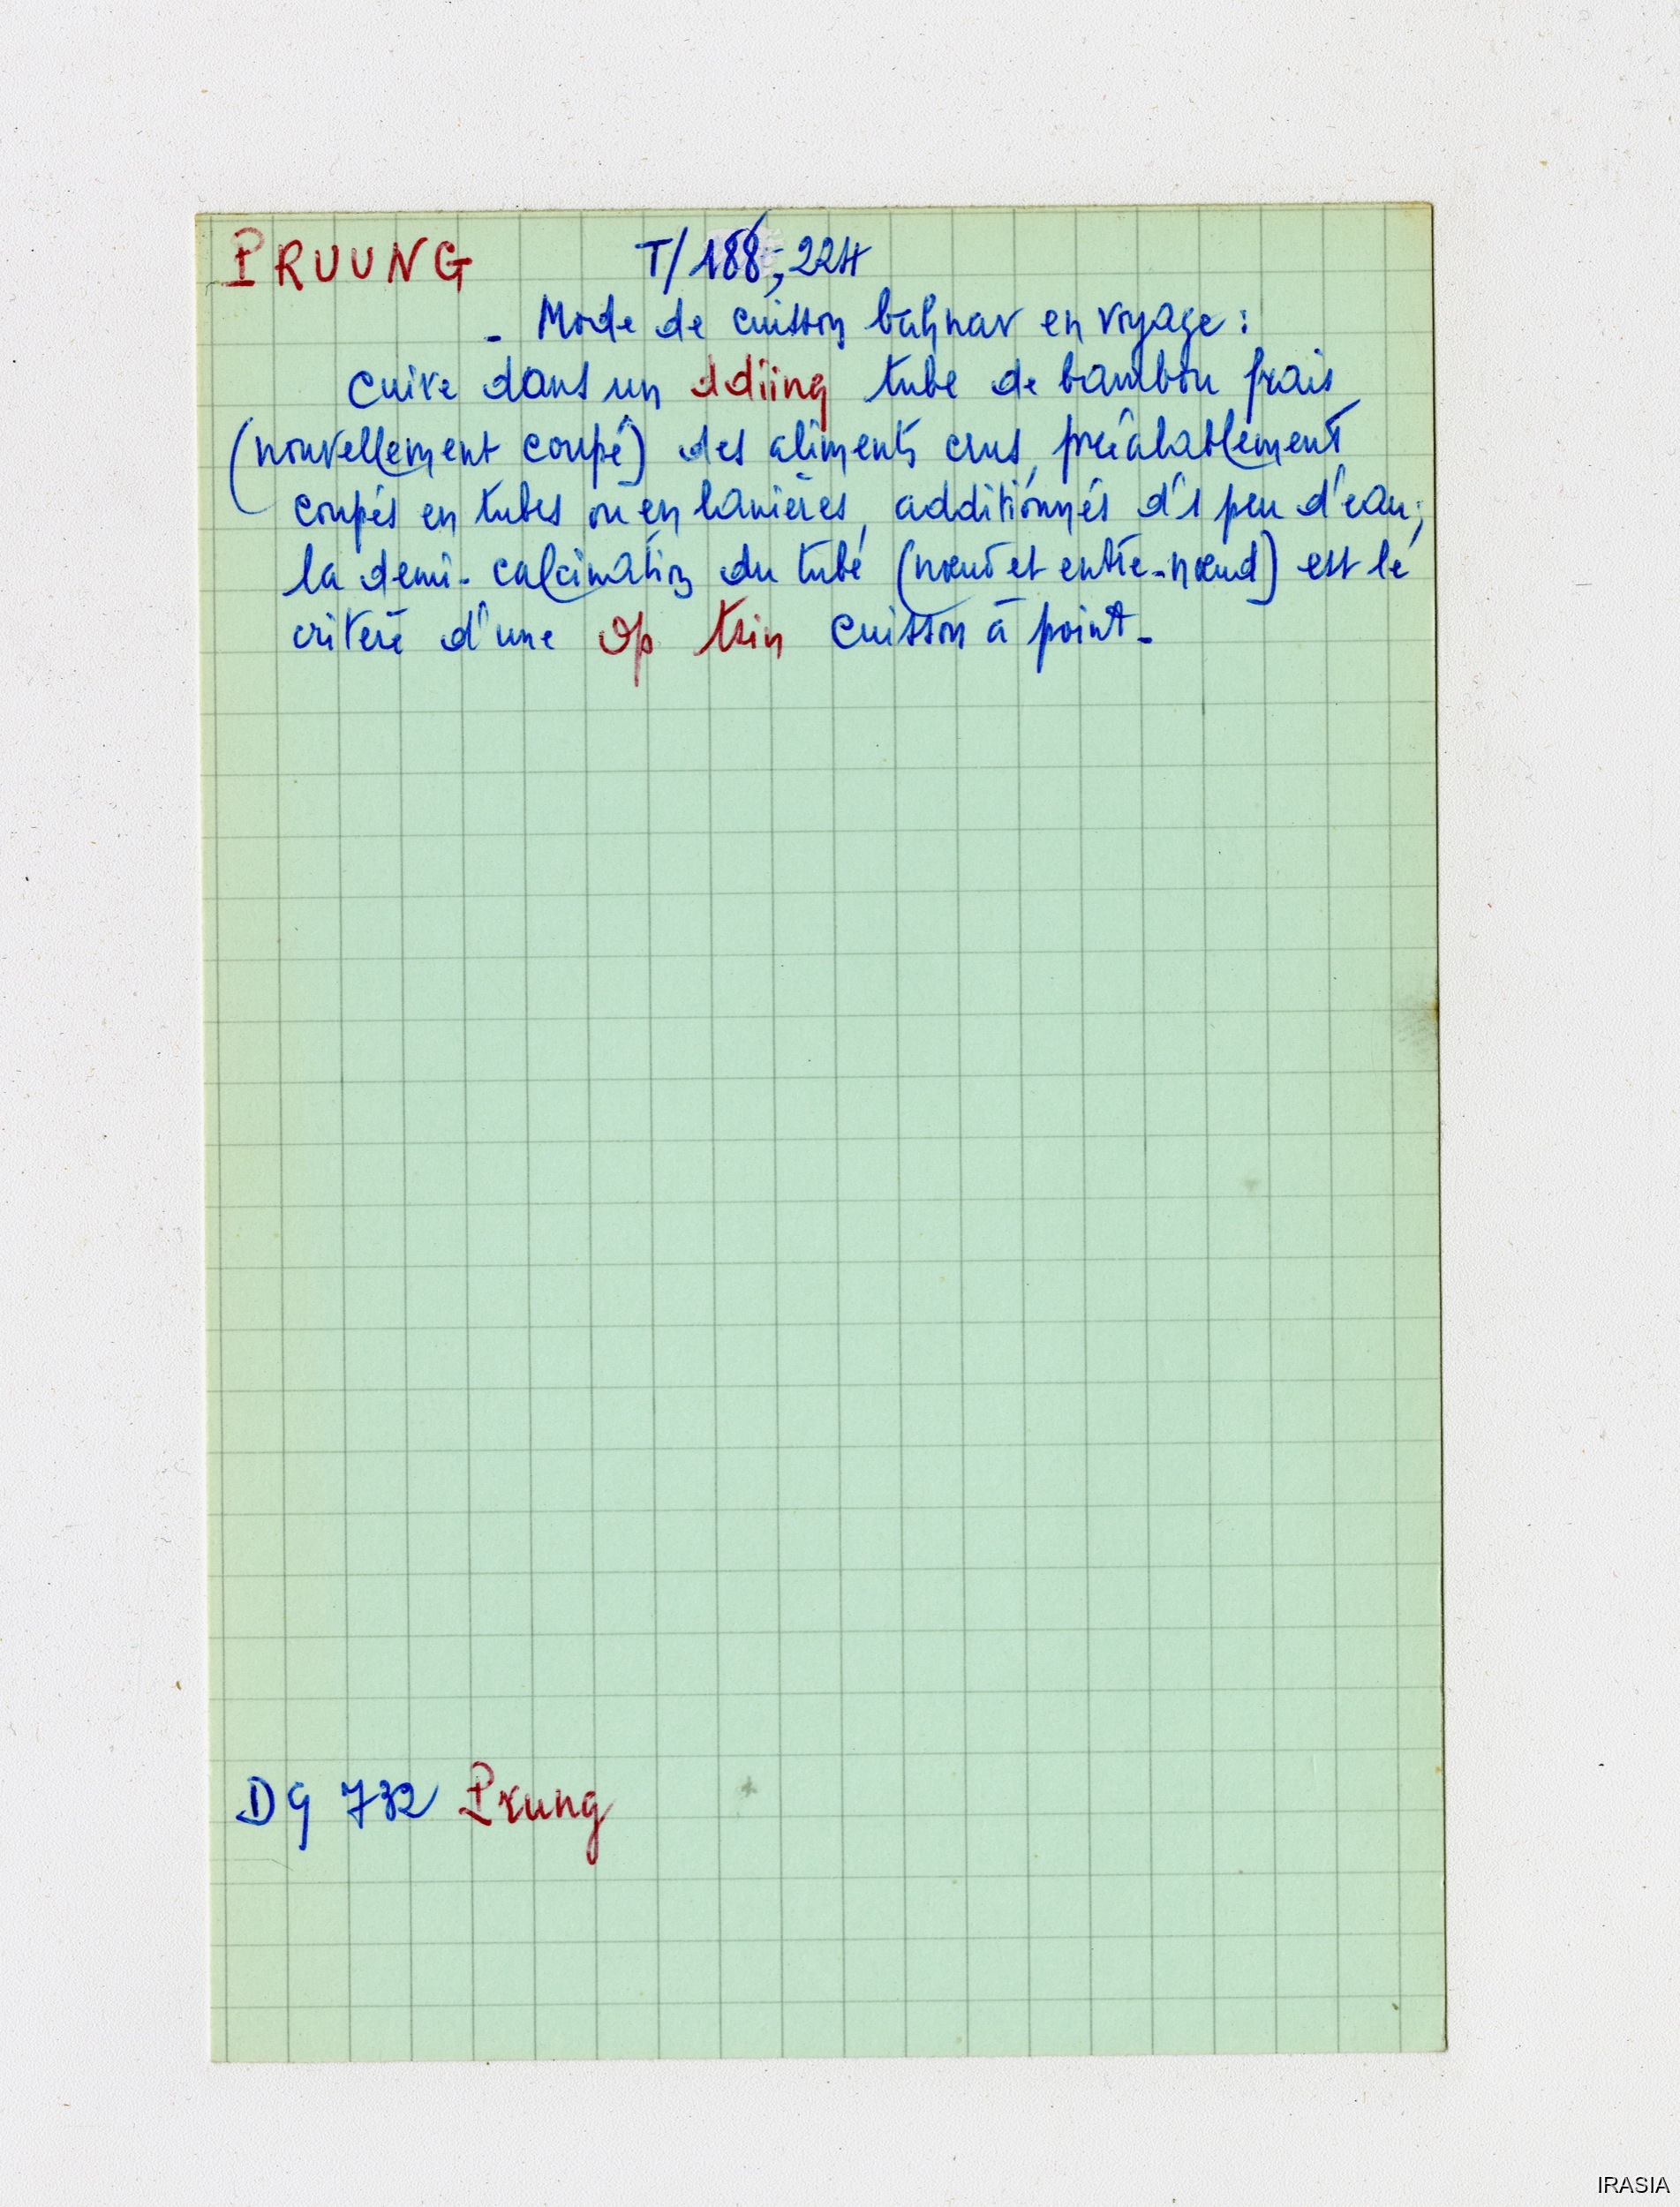 PRUUNG T/188,224
- Mode de cuisson bahnar en voyage :
cuire dans un ddiing tube de bambou frais
(nouvellement coupé) des aliments crus, préalablement
coupés en tubes ou en lanières, additionnés d'1 peu d'eau;
la demi-calcination du tube (nœud et entre-nœud) est le
critère d'une op tsin cuisson à point-
DG 732 Prung
IRASIA